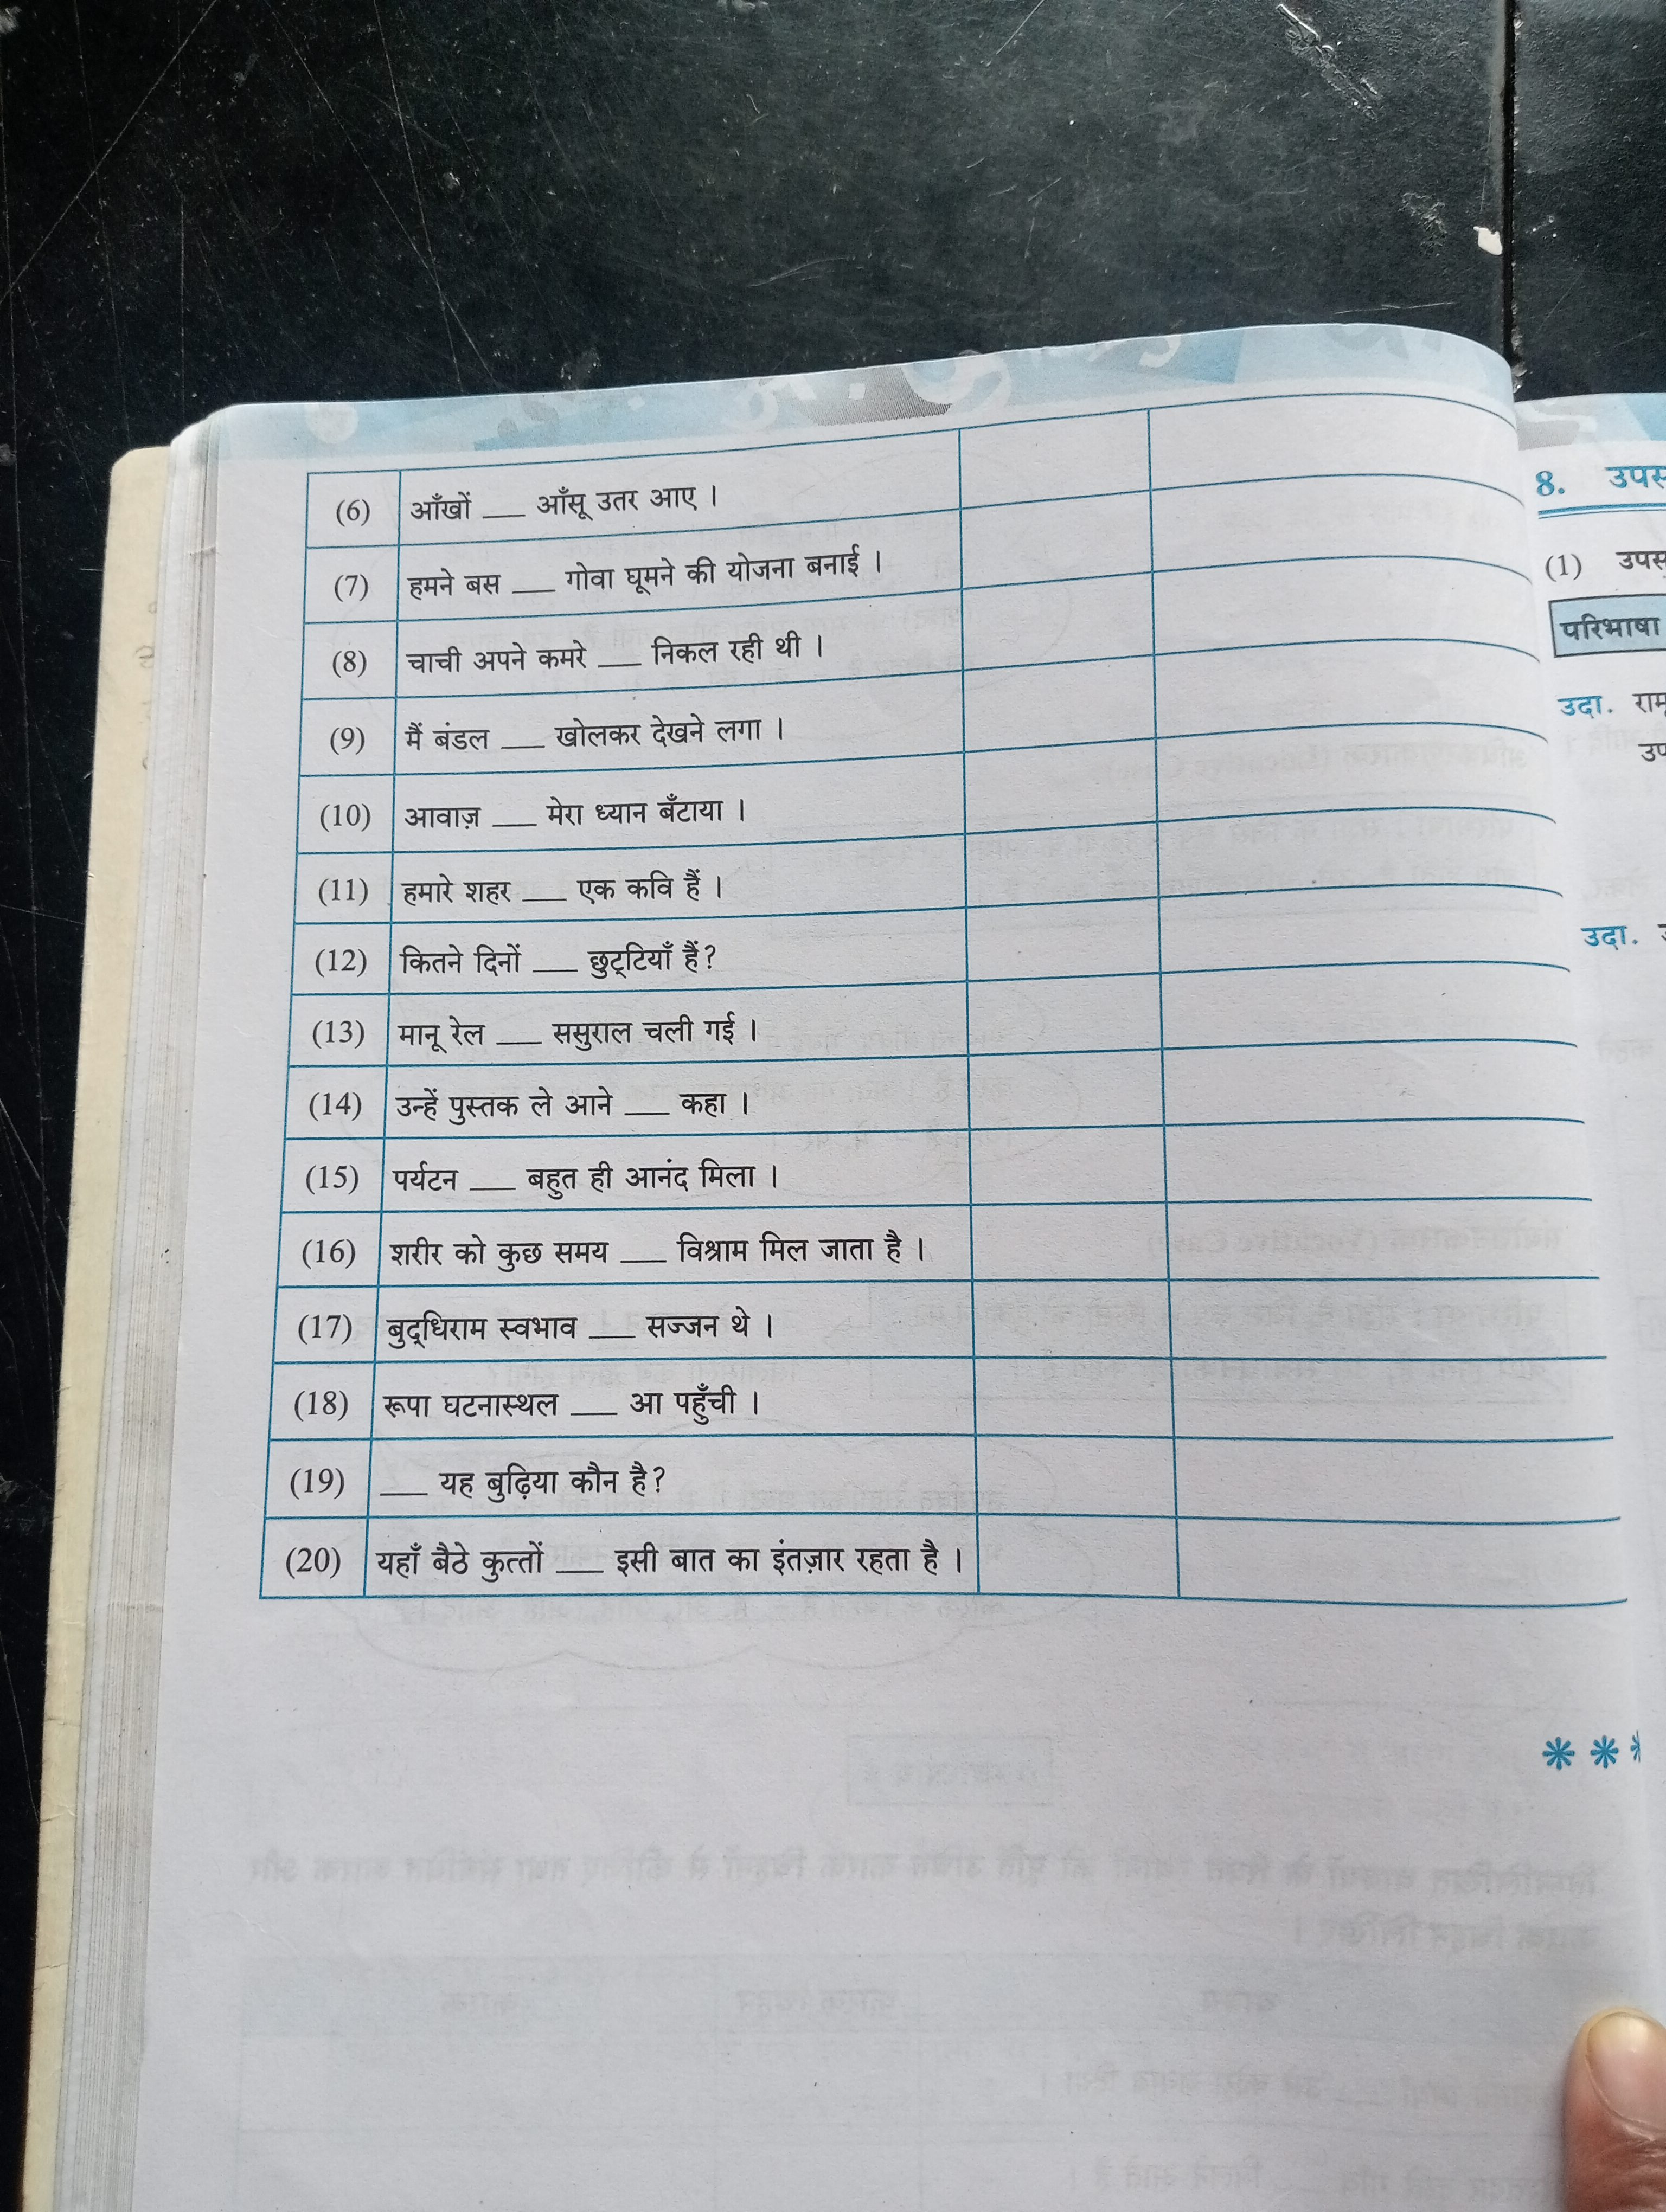 (6) आँखों ___ आँसू उतर आए ।
(7) हमने बस ___ गोवा घूमने की योजना बनाई ।
(8) चाची अपने कमरे ___ निकल रही थी ।
(9) मैं बंडल ___ खोलकर देखने लगा ।
(10) आवाज़ ___ मेरा ध्यान बँटाया ।
(11) हमारे शहर ___ एक कवि हैं ।
(12) कितने दिनों ___ छुट्‌टियाँ हैं?
(13) मानू रेल ___ ससुराल चली गई ।
(14) उन्हें पुस्तक ले आने ___ कहा ।
(15) पर्यटन ___ बहुत ही आनंद मिला ।
(16) शरीर को कुछ समय ___ विश्राम मिल जाता है ।
(17) बुद्‌धिराम स्वभाव ___ सज्जन थे ।
(18) रूपा घटनास्थल ___ आ पहुँची ।
(19) ___ यह बुढ़िया कौन है?
(20) यहाँ बैठे कुत्तों ___ इसी बात का इंतज़ार रहता है ।
8.
(1)
परिभाषा
उदा.
उदा.